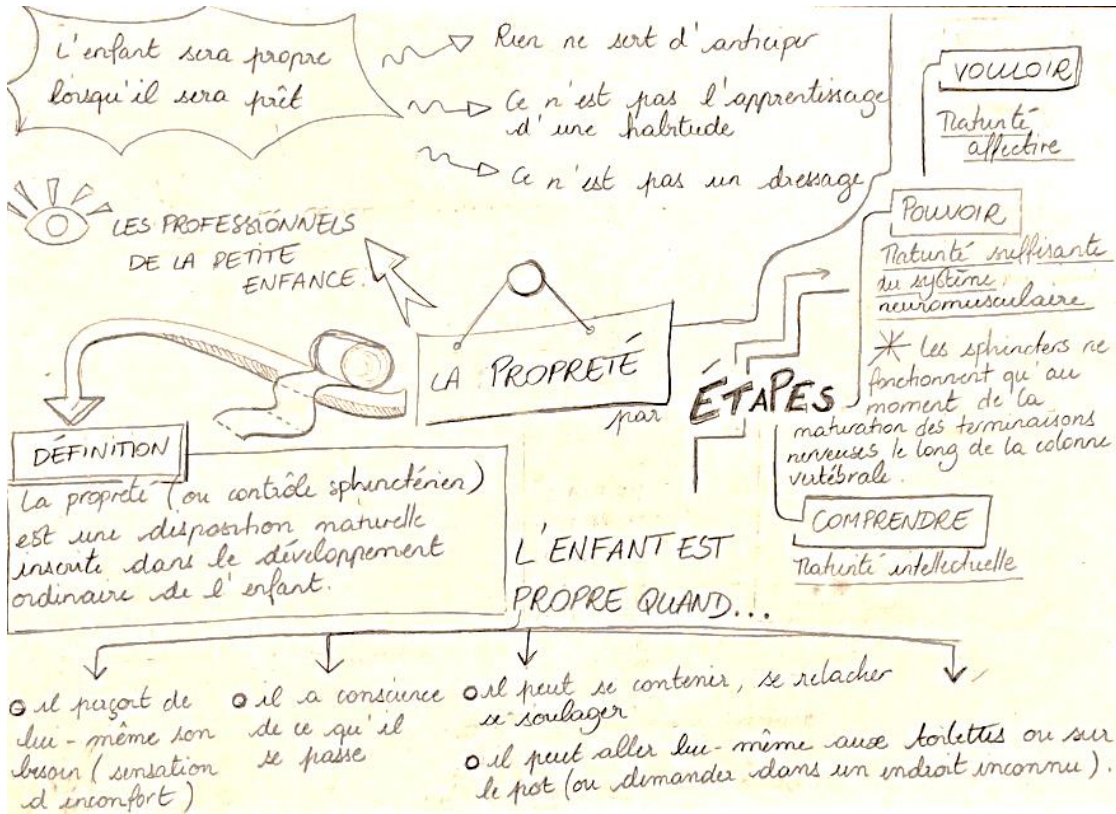 L'enfant sera propre
lorsqu'il sera prêt
Rien ne sert d'anticiper
Ce n'est pas l'apprentissage
d'une habitude
Ce n'est pas un dressage
LES PROFESSIONNELS
DE LA PETITE
ENFANCE.
LA PROPRETÉ
par
ÉTAPES
VOULOIR
Maturité
affective
POUVOIR
Maturité suffisante
du système
neuromusculaire
* Les sphincters ne
fonctionnent qu'au
moment de la
maturation des terminaisons
nerveuses le long de la colonne
vertébrale.
COMPRENDRE
Maturité intellectuelle
DÉFINITION
La propreté (ou contrôle sphinctérien)
est une disposition naturelle
inscrite dans le développement
ordinaire de l'enfant.
L'ENFANT EST
PROPRE QUAND...
il perçoit de
lui-même son
besoin (sensation
d'inconfort)
il a conscience
de ce qu'il
se passe
il peut se contenir, se relacher
se soulager
il peut aller lui-même aux toilettes ou sur
le pot (ou demander dans un endroit inconnu).